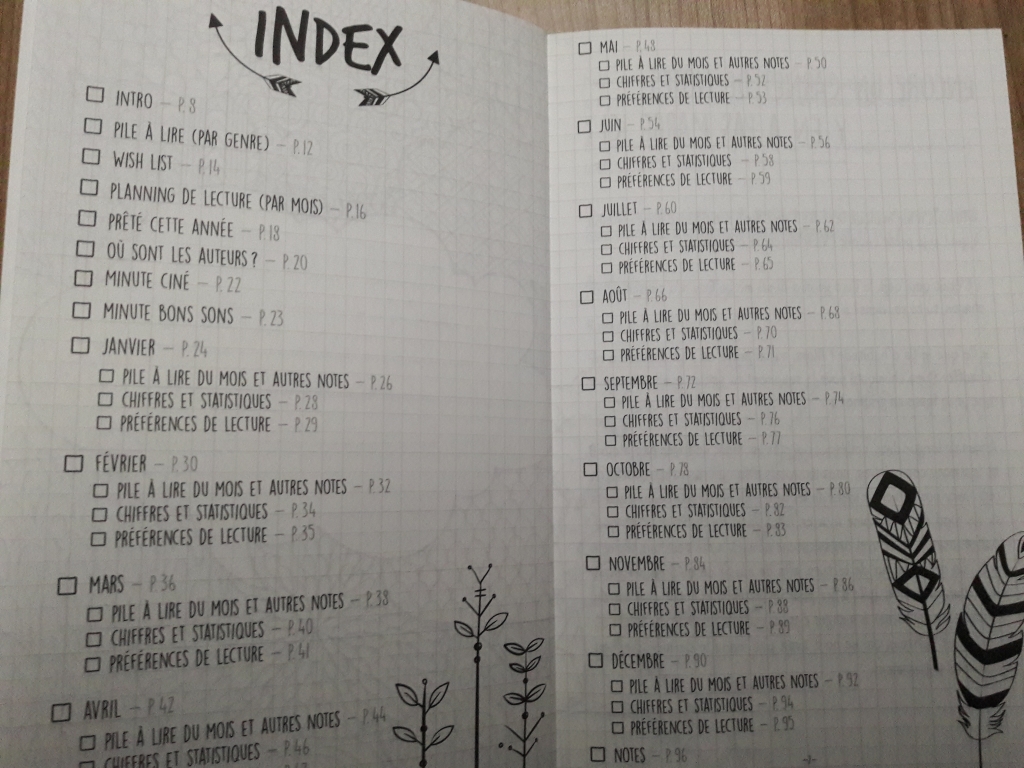 INDEX
INTRO – P.8
PILE À LIRE (PAR GENRE) – P.12
WISH LIST – P.14
PLANNING DE LECTURE (PAR MOIS) – P.16
PRÊTÉ CETTE ANNÉE – P.18
OÙ SONT LES AUTEURS ? – P.20
MINUTE CINÉ – P.22
MINUTE BONS SONS – P.23
JANVIER – P.24
PILE À LIRE DU MOIS ET AUTRES NOTES – P.26
CHIFFRES ET STATISTIQUES – P.28
PRÉFÉRENCES DE LECTURE – P.29
FÉVRIER – P.30
PILE À LIRE DU MOIS ET AUTRES NOTES – P.32
CHIFFRES ET STATISTIQUES – P.34
PRÉFÉRENCES DE LECTURE – P.35
MARS – P.36
PILE À LIRE DU MOIS ET AUTRES NOTES – P.38
CHIFFRES ET STATISTIQUES – P.40
PRÉFÉRENCES DE LECTURE – P.41
AVRIL – P.42
PILE À LIRE DU MOIS ET AUTRES NOTES – P.44
CHIFFRES ET STATISTIQUES – P.46
MAI – P.48
PILE À LIRE DU MOIS ET AUTRES NOTES – P.50
CHIFFRES ET STATISTIQUES – P.52
PRÉFÉRENCES DE LECTURE – P.53
JUIN – P.54
PILE À LIRE DU MOIS ET AUTRES NOTES – P.56
CHIFFRES ET STATISTIQUES – P.58
PRÉFÉRENCES DE LECTURE – P.59
JUILLET – P.60
PILE À LIRE DU MOIS ET AUTRES NOTES – P.62
CHIFFRES ET STATISTIQUES – P.64
PRÉFÉRENCES DE LECTURE – P.65
AOÛT – P.66
PILE À LIRE DU MOIS ET AUTRES NOTES – P.68
CHIFFRES ET STATISTIQUES – P.70
PRÉFÉRENCES DE LECTURE – P.71
SEPTEMBRE – P.72
PILE À LIRE DU MOIS ET AUTRES NOTES – P.74
CHIFFRES ET STATISTIQUES – P.76
PRÉFÉRENCES DE LECTURE – P.77
OCTOBRE – P.78
PILE À LIRE DU MOIS ET AUTRES NOTES – P.80
CHIFFRES ET STATISTIQUES – P.82
PRÉFÉRENCES DE LECTURE – P.83
NOVEMBRE – P.84
PILE À LIRE DU MOIS ET AUTRES NOTES – P.86
CHIFFRES ET STATISTIQUES – P.88
PRÉFÉRENCES DE LECTURE – P.89
DÉCEMBRE – P.90
PILE À LIRE DU MOIS ET AUTRES NOTES – P.92
CHIFFRES ET STATISTIQUES – P.94
PRÉFÉRENCES DE LECTURE – P.95
NOTES – P.96